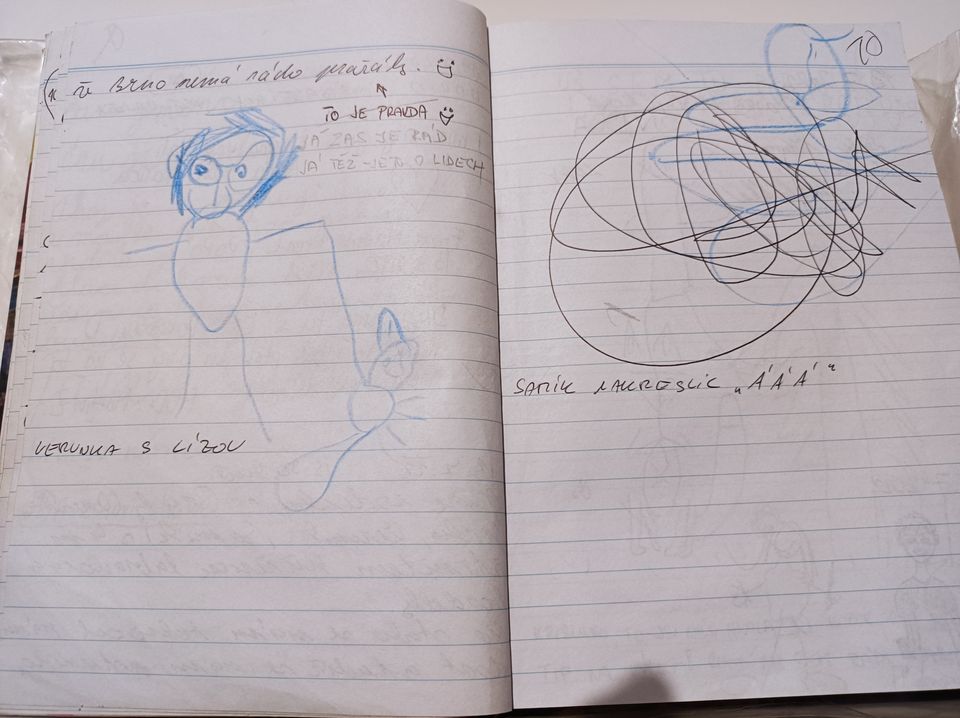 že Brno nemá rádo pražáky.
TO JE PRAVDA
JÁ ZAS JE RÁD
JÁ TÉŽ - JE TO O LIDECH
VERUNKA S LÍZOU
10
SAMÍK NAKRESLIL „Á Á Á“